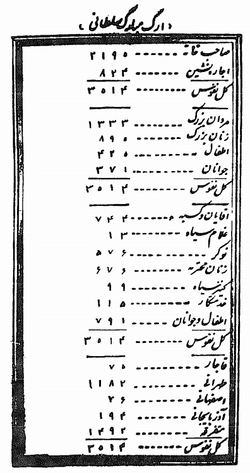 (ارگ مبارک سلطانی)
صاحب خانه ۲۱۹۰
اجاره نشین ۸۲۴
کل نفوس ۳۰۱۴
مردان بزرگ ۱۳۳۳
زنان بزرگ ۸۹۵
اطفال ۴۱۵
جوانان ۳۷۱
کل نفوس ۳۰۱۴
آقایان و کسبه ۷۴۴
غلام سیاه ۱۳
نوکر ۵۷۶
زنان محترمه ۶۷۶
کنیز سیاه ۹۹
خدمتکار ۱۱۵
اطفال و جوانان ۷۹۱
کل نفوس ۳۰۱۴
قاجار ۷۵
طهرانی ۱۱۸۲
اصفهانی ۳۶
آذربایجانی ۱۹۴
متفرقه ۱۴۹۲
کل نفوس ۳۰۱۴